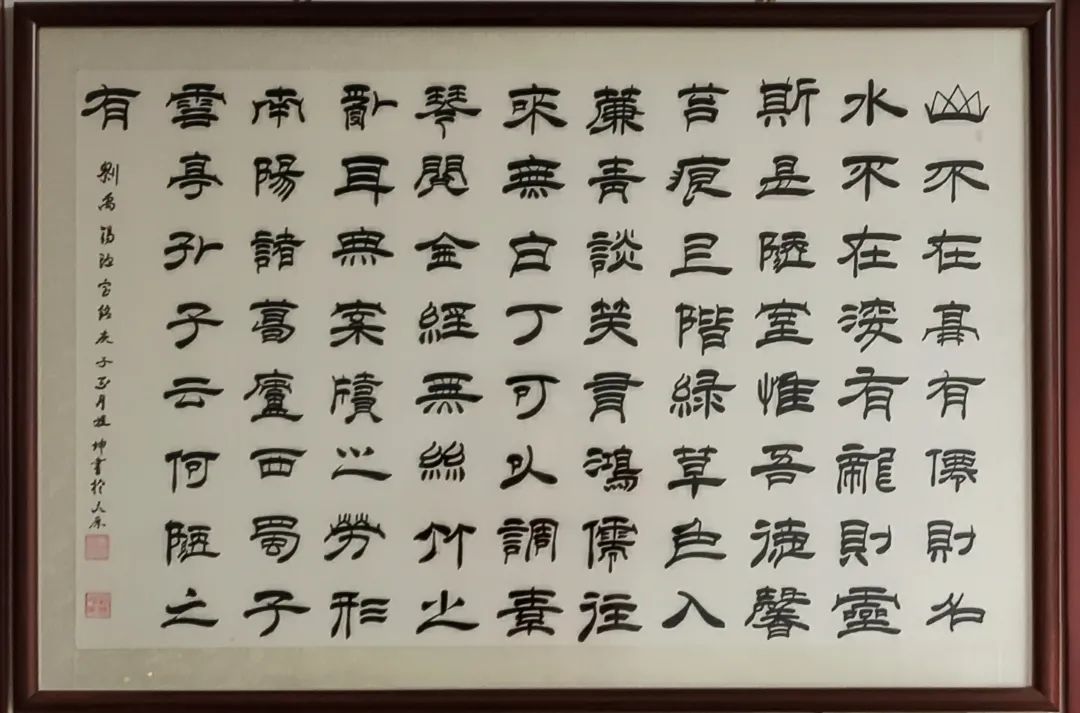 山不在高有僊則名
水不在深有龍則靈
斯是陋室惟吾德馨
苔痕上階綠草色入
簾青談笑有鴻儒往
來無白丁可以調素
琴閱金經無絲竹之
亂耳無案牘之勞形
南陽諸葛廬西蜀子
雲亭孔子云何陋之
有
劉禹錫陋室銘庚子正月坤書於太原